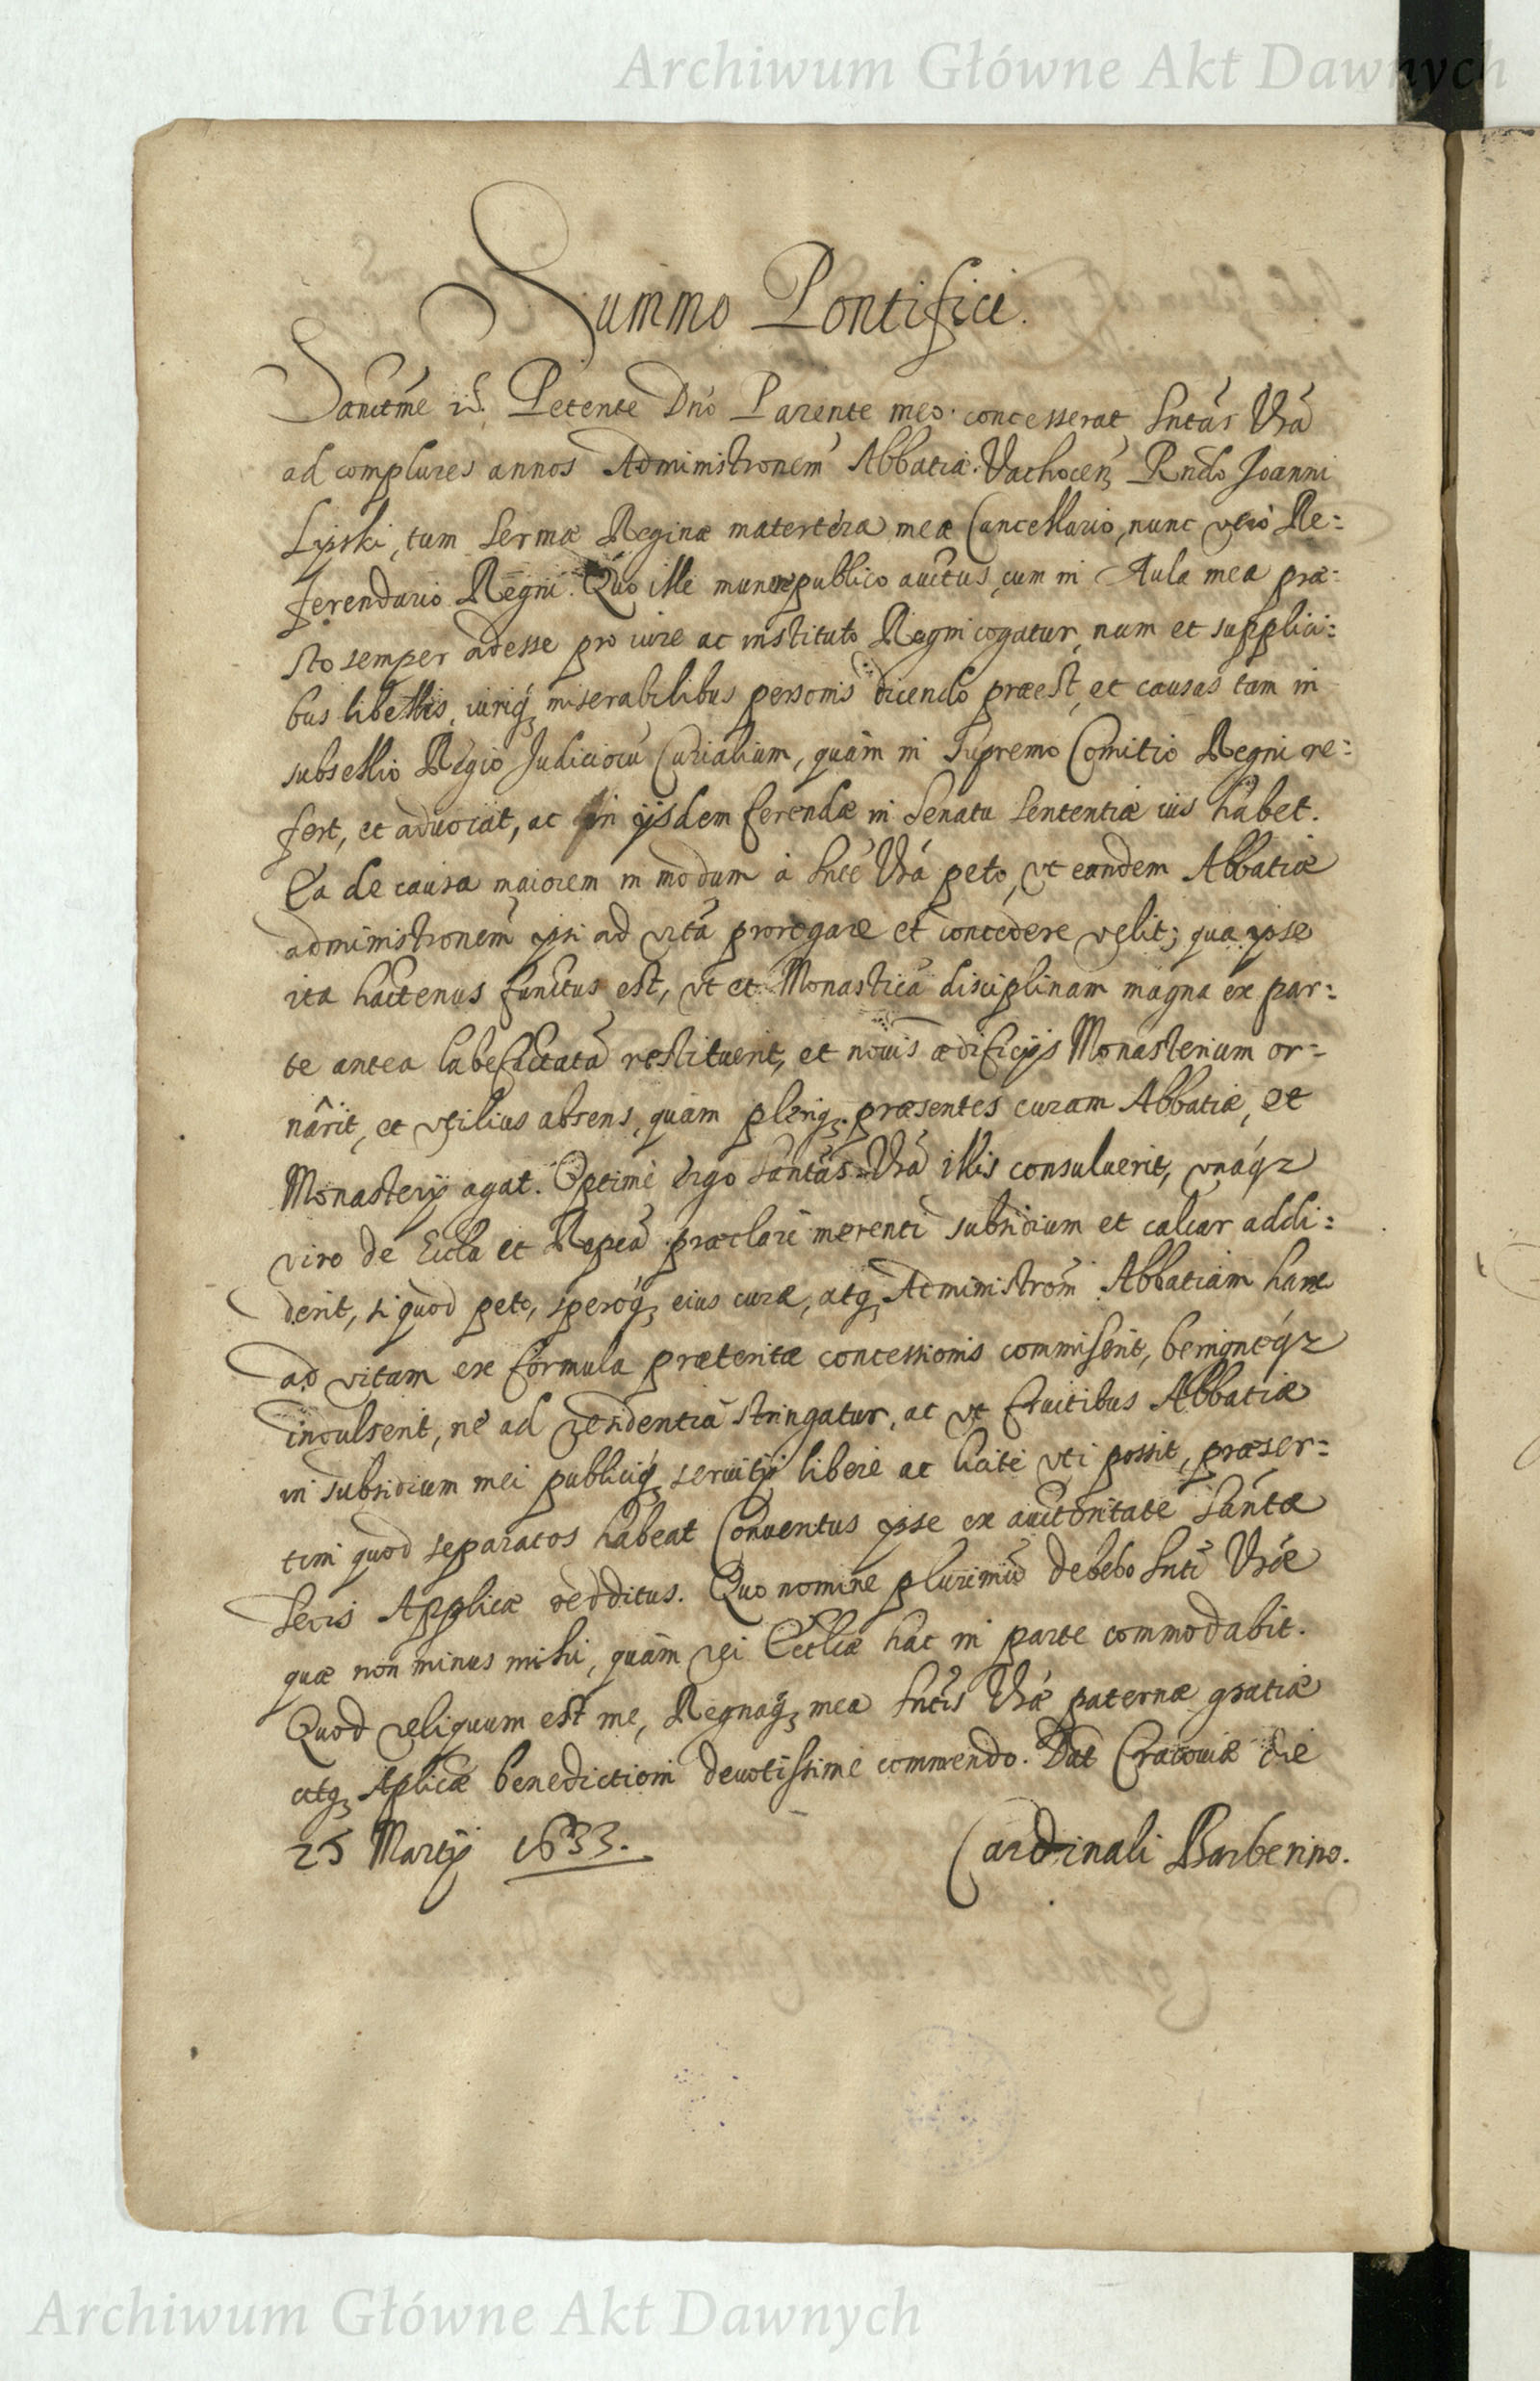 Archiwum Główne Akt Dawnych
Summo Pontifici.
Sanctme Petente Dno Parente meo concesserat Sntas Vra
ad complures annos Administronem Abbatiæ Vachocen Rndo Joanni
Lipski, tum Sermæ Reginæ materteræ meæ Cancellario, nunc verò Re:
ferendario Regni. Quo ille munere publico auctus, cum in Aula mea præ:
sto semper adesse pro iure ac instituto Regni cogatur, nam et supplici:
bus libellis, iuriq miserabilibus personis dicendo præest, et causas tam in
subsellio Regio Judiciorū Curialium, quàm in Supremo Comitio Regni re:
fert, et aduocat, ac in ijsdem ferendæ in Senatu Sententiæ ius habet.
Ea de causa maiorem in modum à Snte Vrâ peto, vt eandem Abbatiæ
administronem ipsi ad vitā prorogare et concedere velit; qua ipse
ita hactenus functus est, vt et Monasticā disciplinam magna ex par:
te antea labefactatā restituerit, et nouis ædificijs Monasterium or:
nârit, et vtilius absens, quàm pleriq præsentes curam Abbatiæ, et
Monasterij agat. Optimè ergo Santas Vra illis consuluerit, vnáq
viro de Eccla et Repca præclarè merenti subsidium et calcar addi:
derit, si quod peto, speroq, eius curæ, atq Administrom Abbatiam hanc
ad vitam ex formula præteritæ concessionis commiserit, benignéq
indulserit, ne ad residentiā stringatur, ac vt fructibus Abbatiæ
in subsidium mei publiciq seruitij liberè ac licitè vti possit, præser:
tim quod separatos habeat Conuentus ipse ex auctoritate Sanctæ
Sedis Applicæ redditus. Quo nomine plurimū debebo Snti Vræ
quæ non minus mihi, quàm rei Eccliæ hac in parte commodabit.
Quod reliquum est me, Regnaq mea Sntis Vræ paternæ gratiæ
atq Aplicæ benedictioni deuotissimè commendo. Dat Cracouiæ die
25 Martij 1633.
Cardinali Barberino.
Archiwum Główne Akt Dawnych